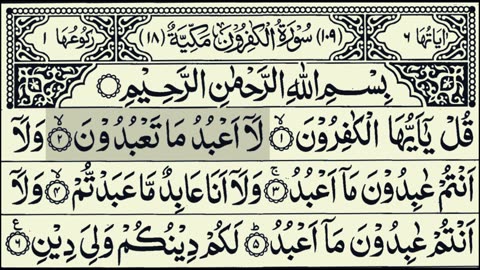 اٰيَاتُهَا ٦ (١٠٩) سُوْرَةُ الْكٰفِرُوْنَ مَكِّيَّةٌ (١٨) رُكُوْعُهَا ١
بِسْمِ اللهِ الرَّحْمٰنِ الرَّحِيْمِ
قُلْ يٰٓاَيُّهَا الْكٰفِرُوْنَ ۙ﴿١﴾ لَاۤ اَعْبُدُ مَا تَعْبُدُوْنَ ۙ﴿٢﴾ وَلَاۤ
اَنْتُمْ عٰبِدُوْنَ مَاۤ اَعْبُدُ ۚ﴿٣﴾ وَلَاۤ اَنَا عَابِدٌ مَّا عَبَدْتُّمْ ۙ﴿٤﴾ وَلَاۤ
اَنْتُمْ عٰبِدُوْنَ مَاۤ اَعْبُدُ ؕ﴿٥﴾ لَكُمْ دِيْنُكُمْ وَلِيَ دِيْنِ ﴿٦﴾ ع